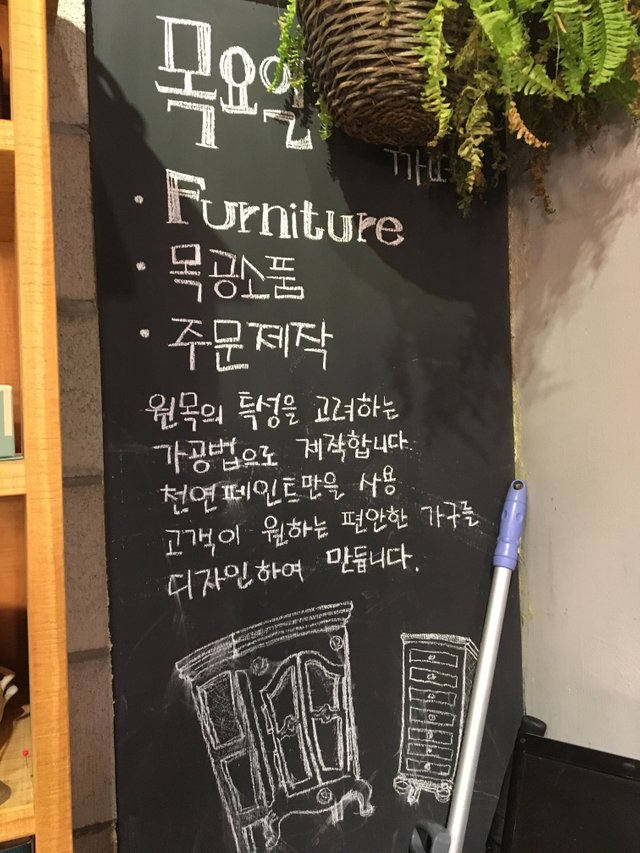 목요일
· Furniture
· 목공소품
· 주문제작
원목의 특성을 고려하는
가공법으로 제작합니다.
천연페인트만을 사용
고객이 원하는 편안한 가구를
디자인하여 만듭니다.